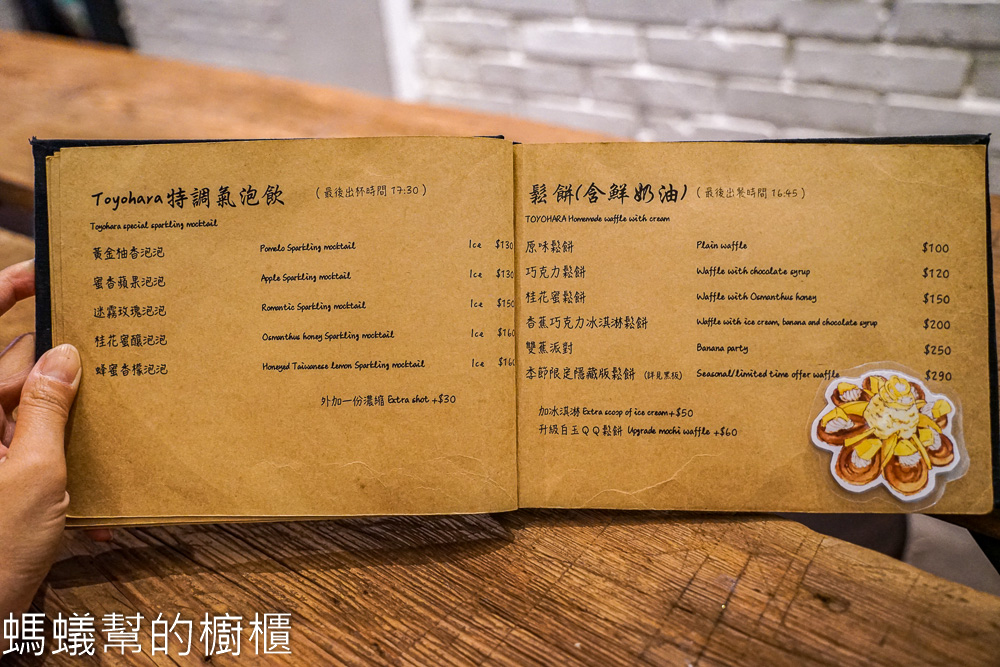 Toyohara特調氣泡飲 (最後出杯時間 17:30)
Toyohara special sparkling mocktail
黃金柚香泡泡 Pomelo Sparkling mocktail Ice $130
蜜香蘋果泡泡 Apple Sparkling mocktail Ice $130
迷霧玫瑰泡泡 Romantic Sparkling mocktail Ice $150
桂花蜜釀泡泡 Osmanthus honey Sparkling mocktail Ice $160
蜂蜜香檬泡泡 Honeyed Taiwanese lemon Sparkling mocktail Ice $160
外加一份濃縮 Extra shot +$30
鬆餅(含鮮奶油) (最後出餐時間 16:45)
TOYOHARA Homemade waffle with cream
原味鬆餅 Plain waffle $100
巧克力鬆餅 Waffle with chocolate syrup $120
桂花蜜鬆餅 Waffle with Osmanthus honey $150
香蕉巧克力冰淇淋鬆餅 Waffle with ice cream, banana and chocolate syrup $200
雙蕉派對 Banana party $250
季節限定隱藏版鬆餅 (詳見黑板) Seasonal/limited time offer waffle $290
加冰淇淋 Extra scoop of ice cream+$50
升級白玉QQ鬆餅 Upgrade mochi waffle +$60
螞蟻幫的櫥櫃